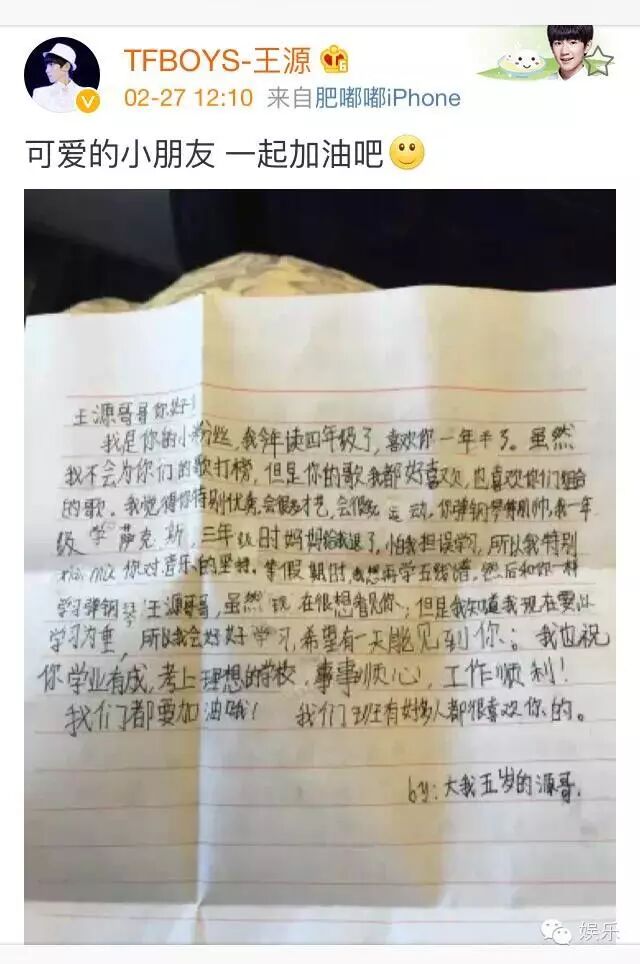 TFBOYS-王源
02-27 12:10 来自肥嘟嘟iPhone
可爱的小朋友 一起加油吧
王源哥哥你好！
我是你的小粉丝，我今年读四年级了，喜欢你一年半了。虽然
我不会为你们的歌打榜，但是你的歌我都好喜欢，也喜欢你们组合
的歌。我觉得你特别优秀，会很多才艺，会很多运动，你弹钢琴特别帅，我一年
级学萨克斯，三年级时妈妈给我退了，怕我担误学习，所以我特别
xian mu 你对音乐的坚持。等假期时，我想再学五线谱，然后和你一样
学习弹钢琴，王源哥哥，虽然现在很想看见你，但是我知道我现在要以
学习为重，所以我会好好学习，希望有一天能见到你；我也祝
你学业有成，考上理想的学校，事事顺心，工作顺利！
我们都要加油哦！ 我们班有好多人都很喜欢你的。
by：大我五岁的源哥.
娱乐